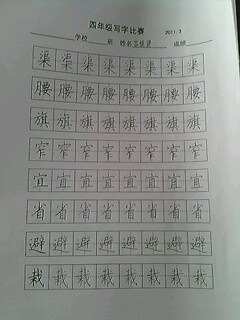 四年级写字比赛 2011.3
学校 班 姓名 成绩
渠渠渠渠渠渠渠渠
腰腰腰腰腰腰腰腰
旗旗旗旗旗旗旗旗
窄窄窄窄窄窄窄窄
宜宜宜宜宜宜宜宜
省省省省省省省省
避避避避避避避避
栽栽栽栽栽栽栽栽